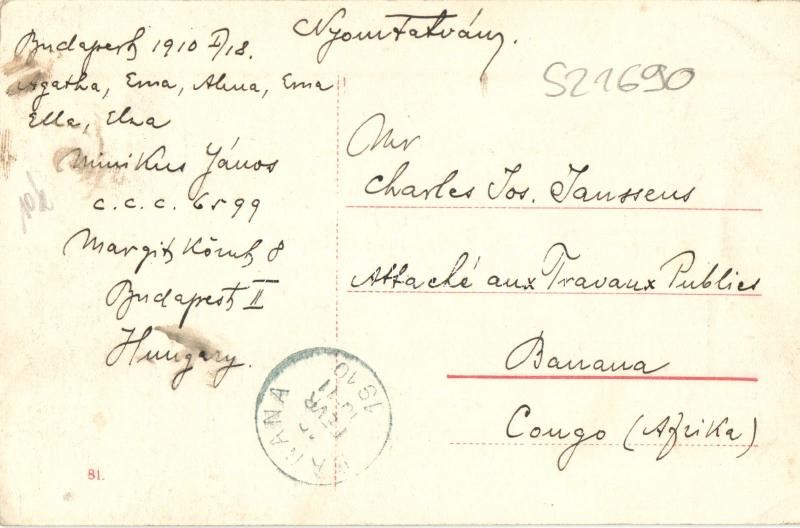 Nyomtatvány.
Budapest, 1910 I/18.
Agatha, Erna, Alma, Erna
Ella, Elza
Minikus János
c.c.c. 6599
Margit Körut 8
Budapest II
Hungary.
S21690
Mr
Charles Jos. Janssens
Attaché aux Travaux Publics
Banana
Congo (Afrika)
BANANA
FEVR
10-11
1910
81.